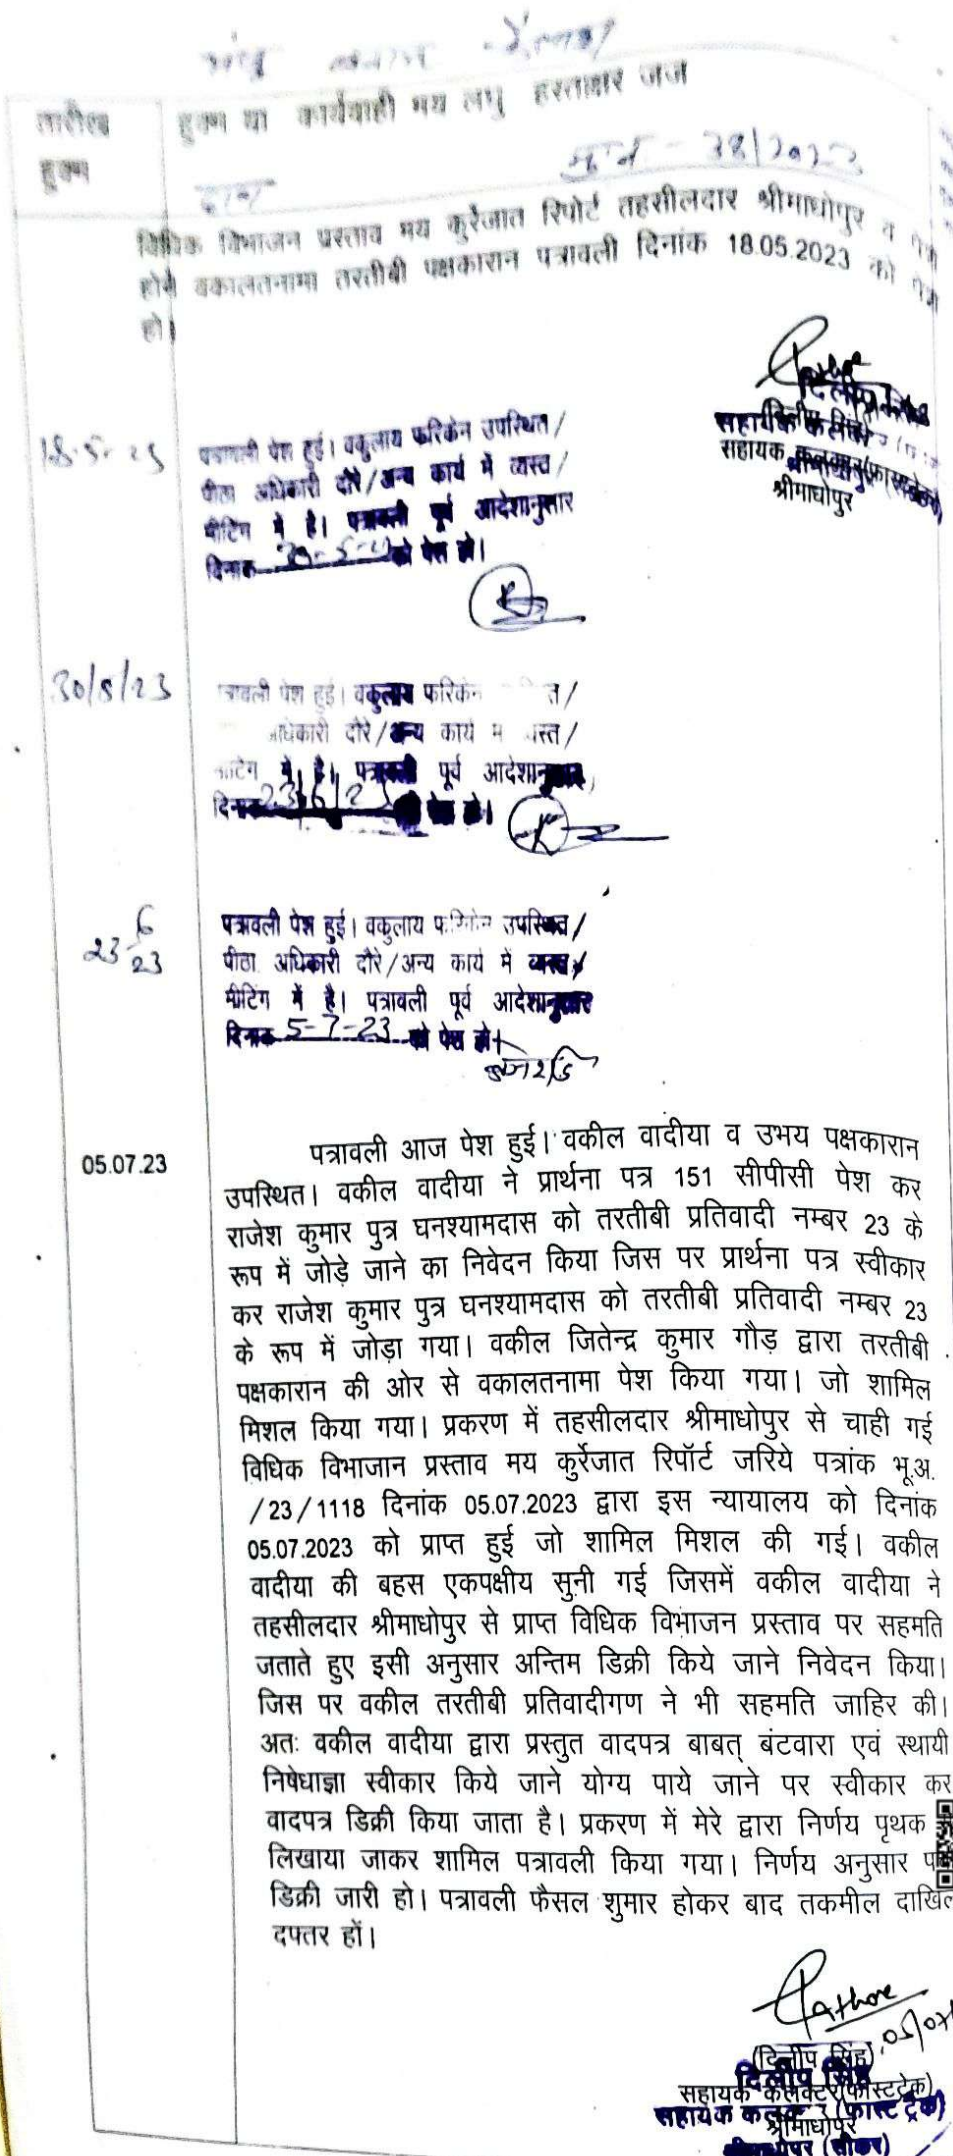 तारीख हुक्म या कार्यवाही मय लघु हस्ताक्षर जज
हुक्म
विधिक विभाजन प्रस्ताव मय कुर्रेजात रिपोर्ट तहसीलदार श्रीमाधोपुर व पेश
होने वकालतनामा तरतीबी पक्षकारान पत्रावली दिनांक 18.05.2023 को पेश
हो।
सहायक कलक्टर(फास्टट्रेक)
श्रीमाधोपुर
18-5-23
पत्रावली पेश हुई। वकुलाय फरिकेन उपस्थित/
पीठा अधिकारी दौरे/अन्य कार्य में व्यस्त/
मीटिंग में है। पत्रावली पूर्व आदेशानुसार
दिनांक 30-5-23 को पेश हो।
30/5/23
पत्रावली पेश हुई। वकुलाय फरिकेन त/
अधिकारी दौरे/अन्य कार्य म व्यस्त/
मीटिंग में है। पत्रावली पूर्व आदेशानुसार
दिनांक 23/6/23 को पेश हो।
23-6-23
पत्रावली पेश हुई। वकुलाय फरिकेन उपस्थित/
पीठा अधिकारी दौरे/अन्य कार्य में व्यस्त/
मीटिंग में है। पत्रावली पूर्व आदेशानुसार
दिनांक 5-7-23 को पेश हो।
05.07.23
पत्रावली आज पेश हुई। वकील वादीया व उभय पक्षकारान
उपस्थित। वकील वादीया ने प्रार्थना पत्र 151 सीपीसी पेश कर
राजेश कुमार पुत्र घनश्यामदास को तरतीबी प्रतिवादी नम्बर 23 के
रूप में जोड़े जाने का निवेदन किया जिस पर प्रार्थना पत्र स्वीकार
कर राजेश कुमार पुत्र घनश्यामदास को तरतीबी प्रतिवादी नम्बर 23
के रूप में जोड़ा गया। वकील जितेन्द्र कुमार गौड़ द्वारा तरतीबी
पक्षकारान की ओर से वकालतनामा पेश किया गया। जो शामिल
मिशल किया गया। प्रकरण में तहसीलदार श्रीमाधोपुर से चाही गई
विधिक विभाजान प्रस्ताव मय कुर्रेजात रिपॉर्ट जरिये पत्रांक भू.अ.
/23/1118 दिनांक 05.07.2023 द्वारा इस न्यायालय को दिनांक
05.07.2023 को प्राप्त हुई जो शामिल मिशल की गई। वकील
वादीया की बहस एकपक्षीय सुनी गई जिसमें वकील वादीया ने
तहसीलदार श्रीमाधोपुर से प्राप्त विधिक विभाजन प्रस्ताव पर सहमति
जताते हुए इसी अनुसार अन्तिम डिक्री किये जाने निवेदन किया।
जिस पर वकील तरतीबी प्रतिवादीगण ने भी सहमति जाहिर की।
अतः वकील वादीया द्वारा प्रस्तुत वादपत्र बाबत् बंटवारा एवं स्थायी
निषेधाज्ञा स्वीकार किये जाने योग्य पाये जाने पर स्वीकार कर
वादपत्र डिक्री किया जाता है। प्रकरण में मेरे द्वारा निर्णय पृथक
लिखाया जाकर शामिल पत्रावली किया गया। निर्णय अनुसार
डिक्री जारी हो। पत्रावली फैसल शुमार होकर बाद तकमील दाखिल
दफ्तर हों।
Rathore
05/07
(दिलीप सिंह)
दिलीप सिंह
सहायक कलक्टर(फास्टट्रेक)
सहायक कलक्टर (फास्ट ट्रेक)
श्रीमाधोपुर
श्रीमाधोपुर (सीकर)